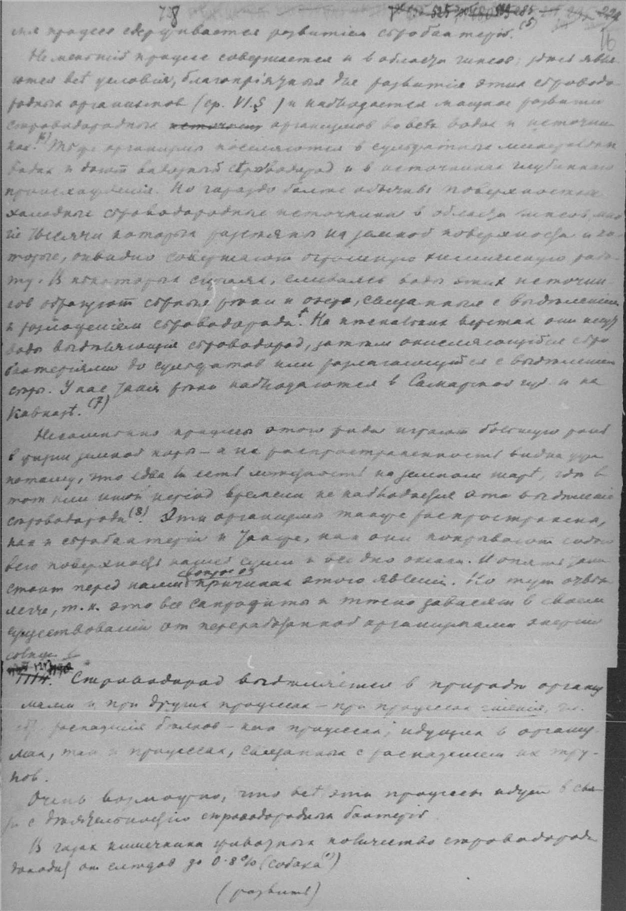 78
16
мя процесс сдерживается развитием серобактерий.(5)
Не меньший процесс совершается и в области гипсов; здесь явля-
ются все условия, благоприятные для развития этих сероводо-
родных организмов (ср. VI §) и наблюдается мощное развитие
сероводородных организмов во всех водах и источни-
ках.(6) Те же организмы поселяются в сульфатных минеральных
водах и дают водорный сероводород и в источниках глубинного
происхождения. Но гораздо более обычны поверхностные
холодные сероводородные источники в области гипсов
тысячи которых рассеяны на земной поверхности и ко-
торые, совершают огромную химическую рабо-
ту. В некоторых случаях, сливаясь воды этих источни-
ков образуют серные реки и озера, связанные с выделением
и разложением сероводорода. На нескольких верстах они несут
воды выделяющие сероводород, затем окисляющийся серо-
бактериями до сульфатов или разлагающийся с выделением
серы. У нас такие реки наблюдаются в Самарской губ и на
Кавказе.(7)
Несомненно процессы этого рода играют большую роль
в химии земной коры — а их распространенность видна уже
потому, что едва ли есть местность на земном шаре, где в
тот или иной период времени не наблюдался это выделение
сероводорода(8) Эти организмы также распространены,
как и серобактерии и также, как они покрывают собою
всю поверхность нашей суши и все дно океана. И опять
стоит перед нами вопрос о причинах этого явления. Но тут
легче, т.к. это все сапрофиты и тесно зависят в своем
существовании от переработанной организмами энергии
солнца
Сероводород выделяется в природе органи-
мами и при других процессах — при процессах гниения,
распадения белков — как процессах, идущих в органи-
мах, так и процессах, связанных с распадением их тру-
пов.
Очень возможно, что все эти процессы идут в свя-
зи с деятельностью сероводородных бактерий.
В газах кишечника животных количество сероводорода
доходит от следов до 0.8% (собака)
(развить)